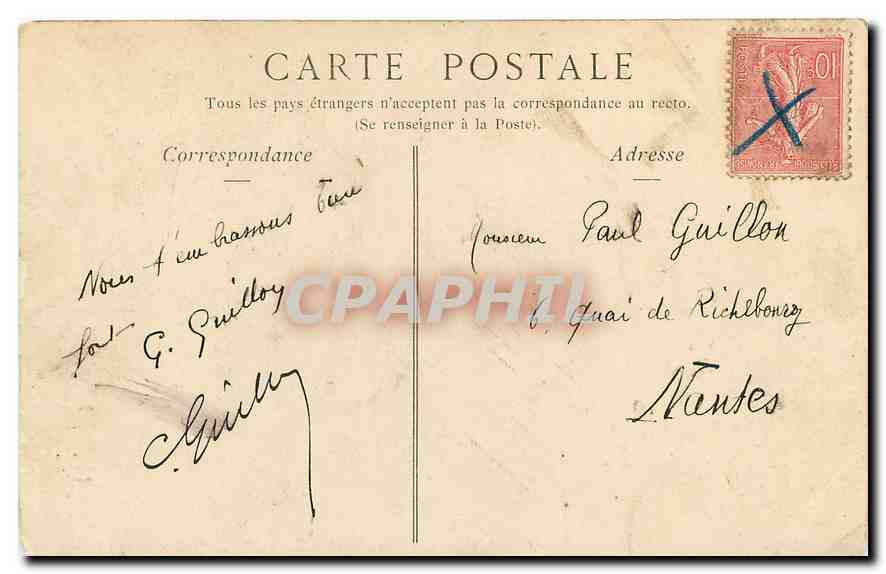 CARTE POSTALE
Tous les pays étrangers n'acceptent pas la correspondance au recto.
(Se renseigner à la Poste).
Correspondance
Nous t'embrassons bien
fort
G. Guillon
Guillon
Adresse
Monsieur Paul Guillon
6, Quai de Richebourg
Nantes
10c
POSTES
REPUBLIQUE FRANÇAISE
CPAPHIL